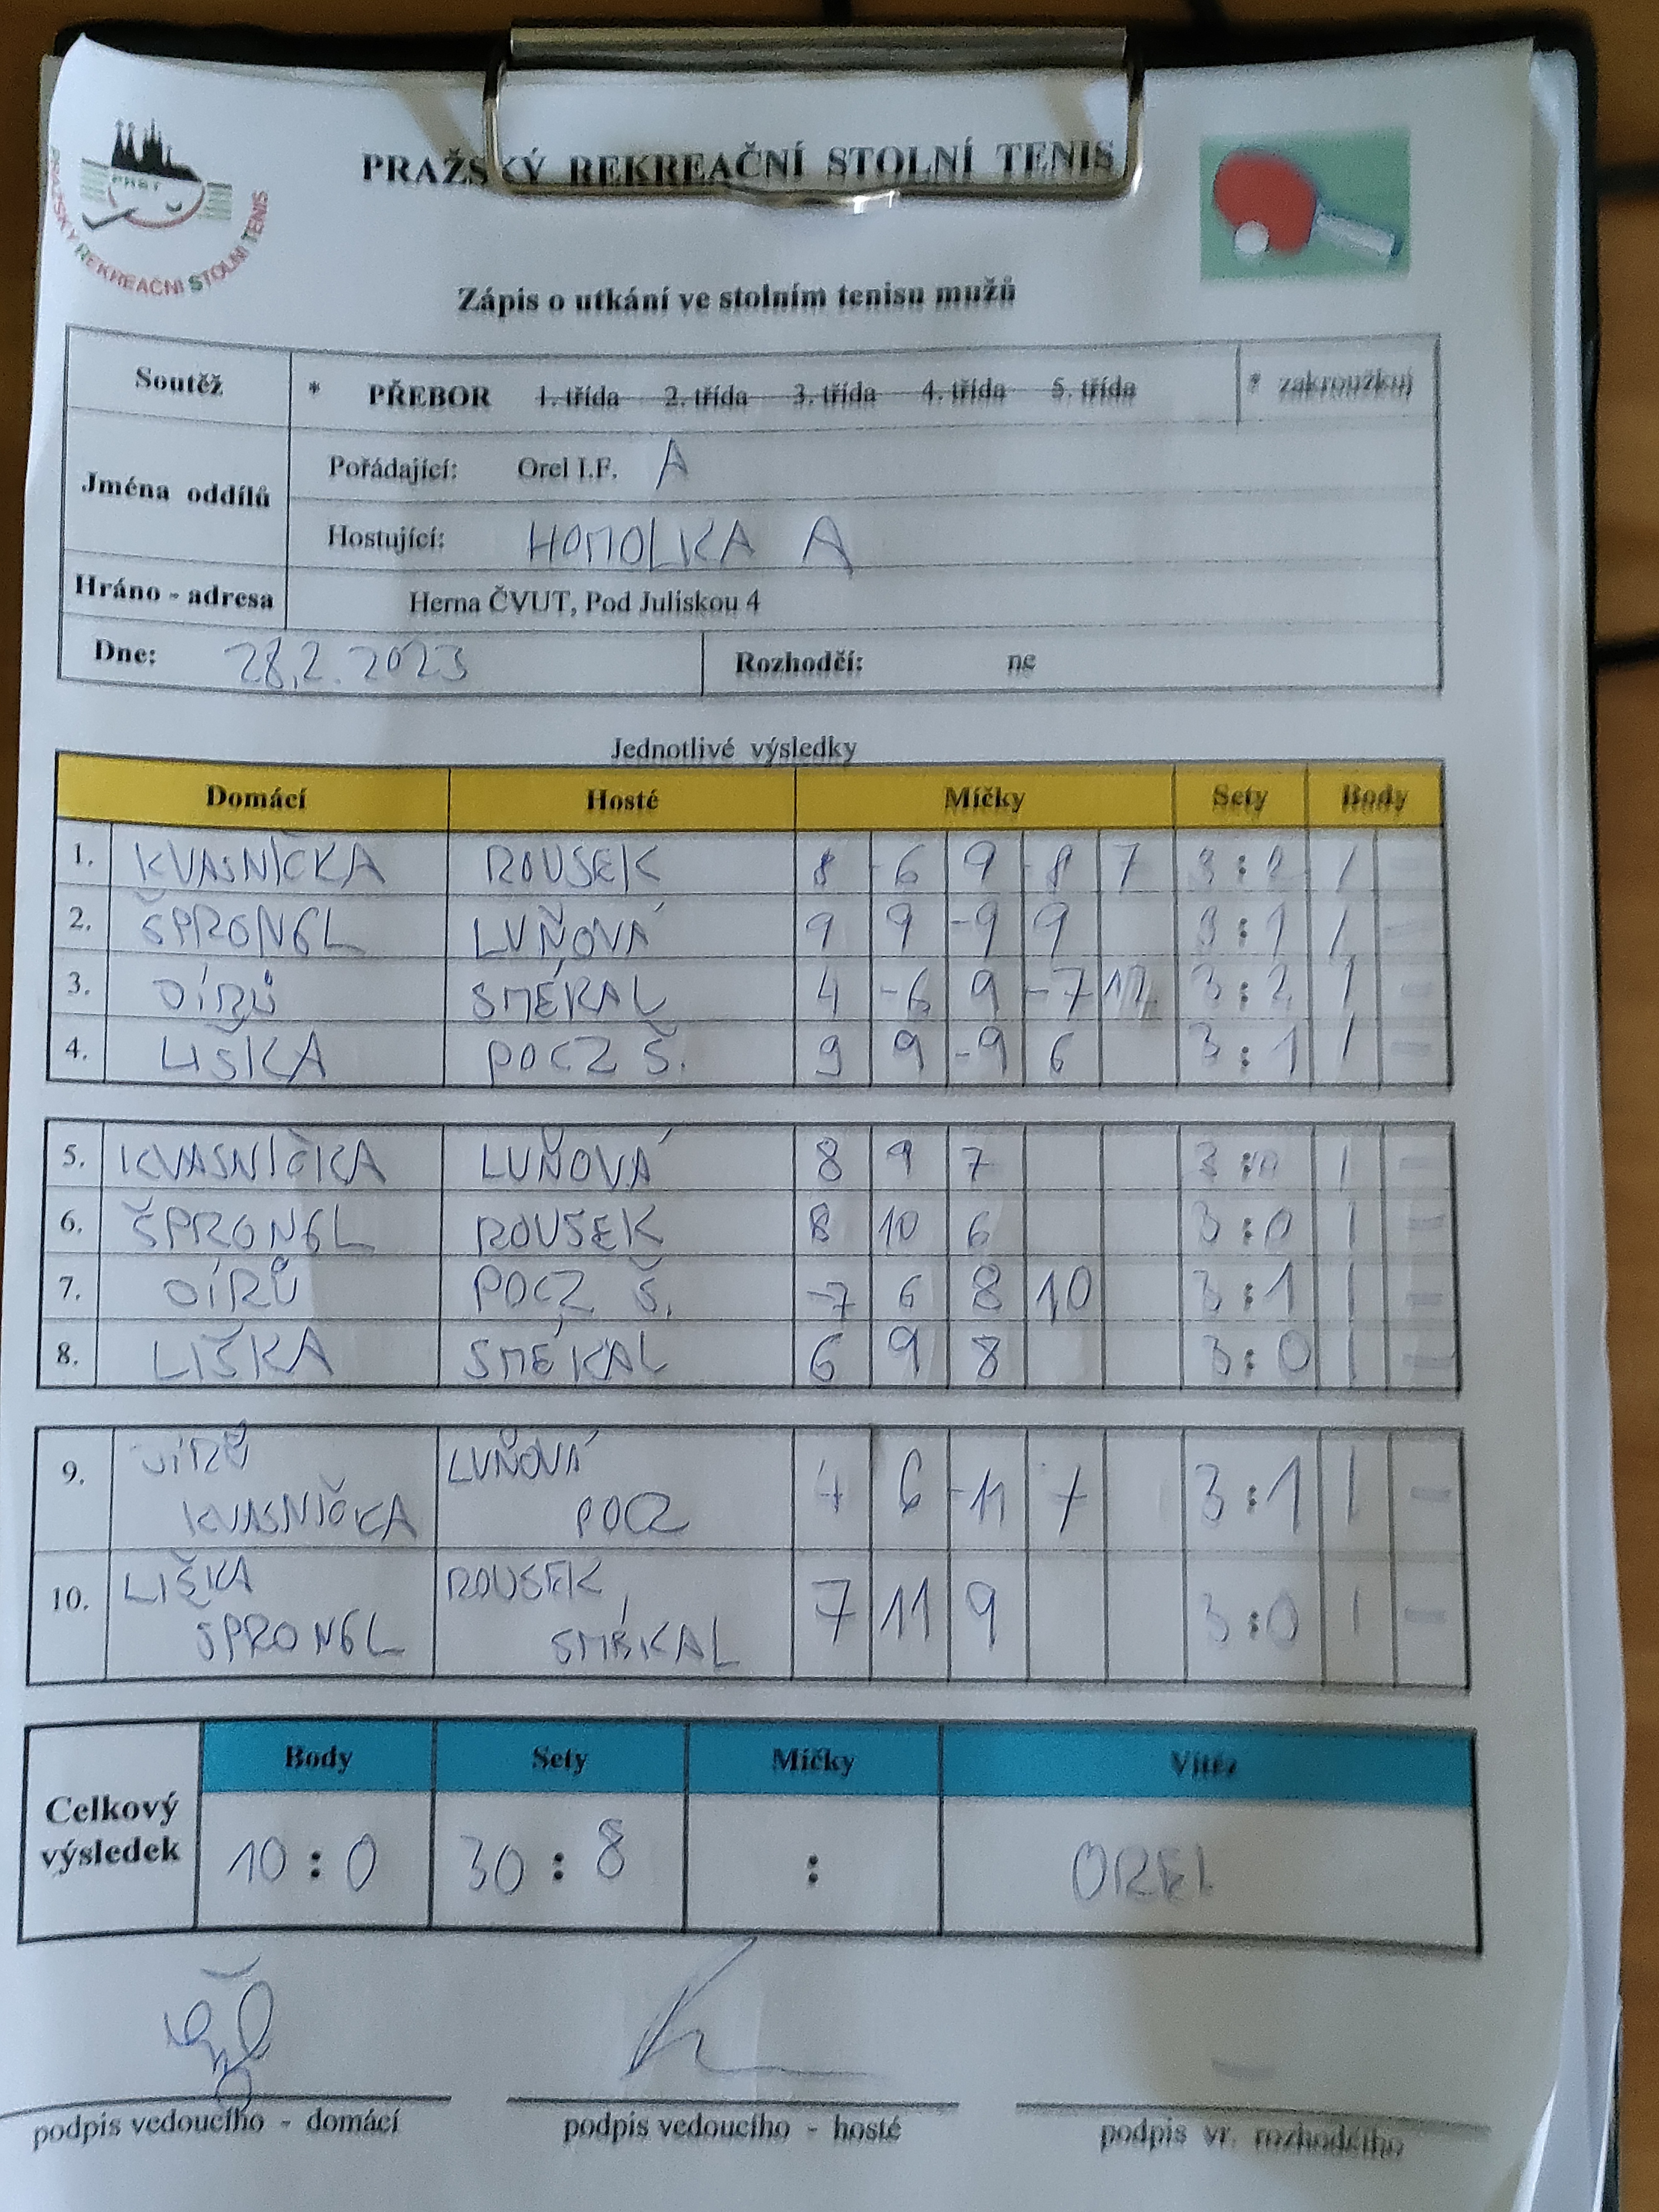 PRAŽSKÝ REKREAČNÍ STOLNÍ TENIS
PRAŽSKÝ REKREAČNÍ STOLNÍ TENIS
Zápis o utkání ve stolním tenisu mužů
Soutěž * PŘEBOR 1. třída 2. třída 3. třída 4. třída 5. třída * zakroužkuj
Jména oddílů
Pořádající: Orel I.F. A
Hostující: HOMOLKA A
Hráno - adresa Herna ČVUT, Pod Juliskou 4
Dne: 28.2.2023 Rozhodčí: ne
Jednotlivé výsledky
Domácí Hosté Míčky Sety Body
1. KVASNIČKA ROUSEK 8 -6 9 -8 7 3:2 1 -
2. ŠPRONGL LUŇOVÁ 9 9 -9 9 3:1 1 -
3. JÍRŮ SMÉKAL 4 -6 9 -7 3:2 1 -
4. LIŠKA POCZ Š. 9 9 -9 6 3:1 1 -
5. KVASNIČKA LUŇOVÁ 8 9 7 3:0 1 -
6. ŠPRONGL ROUSEK 8 10 6 3:0 1 -
7. JÍRŮ POCZ Š. -7 6 8 10 3:1 1 -
8. LIŠKA SMÉKAL 6 9 8 3:0 1 -
9. JÍRŮ LUŇOVÁ 4 6 -11 7 3:1 1 -
KVASNIČKA POCZ
10. LIŠKA ROUSEK 7 11 9 3:0 1 -
ŠPRONGL SMÉKAL
Body Sety Míčky Vítěz
Celkový výsledek 10:0 30:8 : OREL
podpis vedoucího - domácí podpis vedoucího - hosté podpis vr. rozhodčího